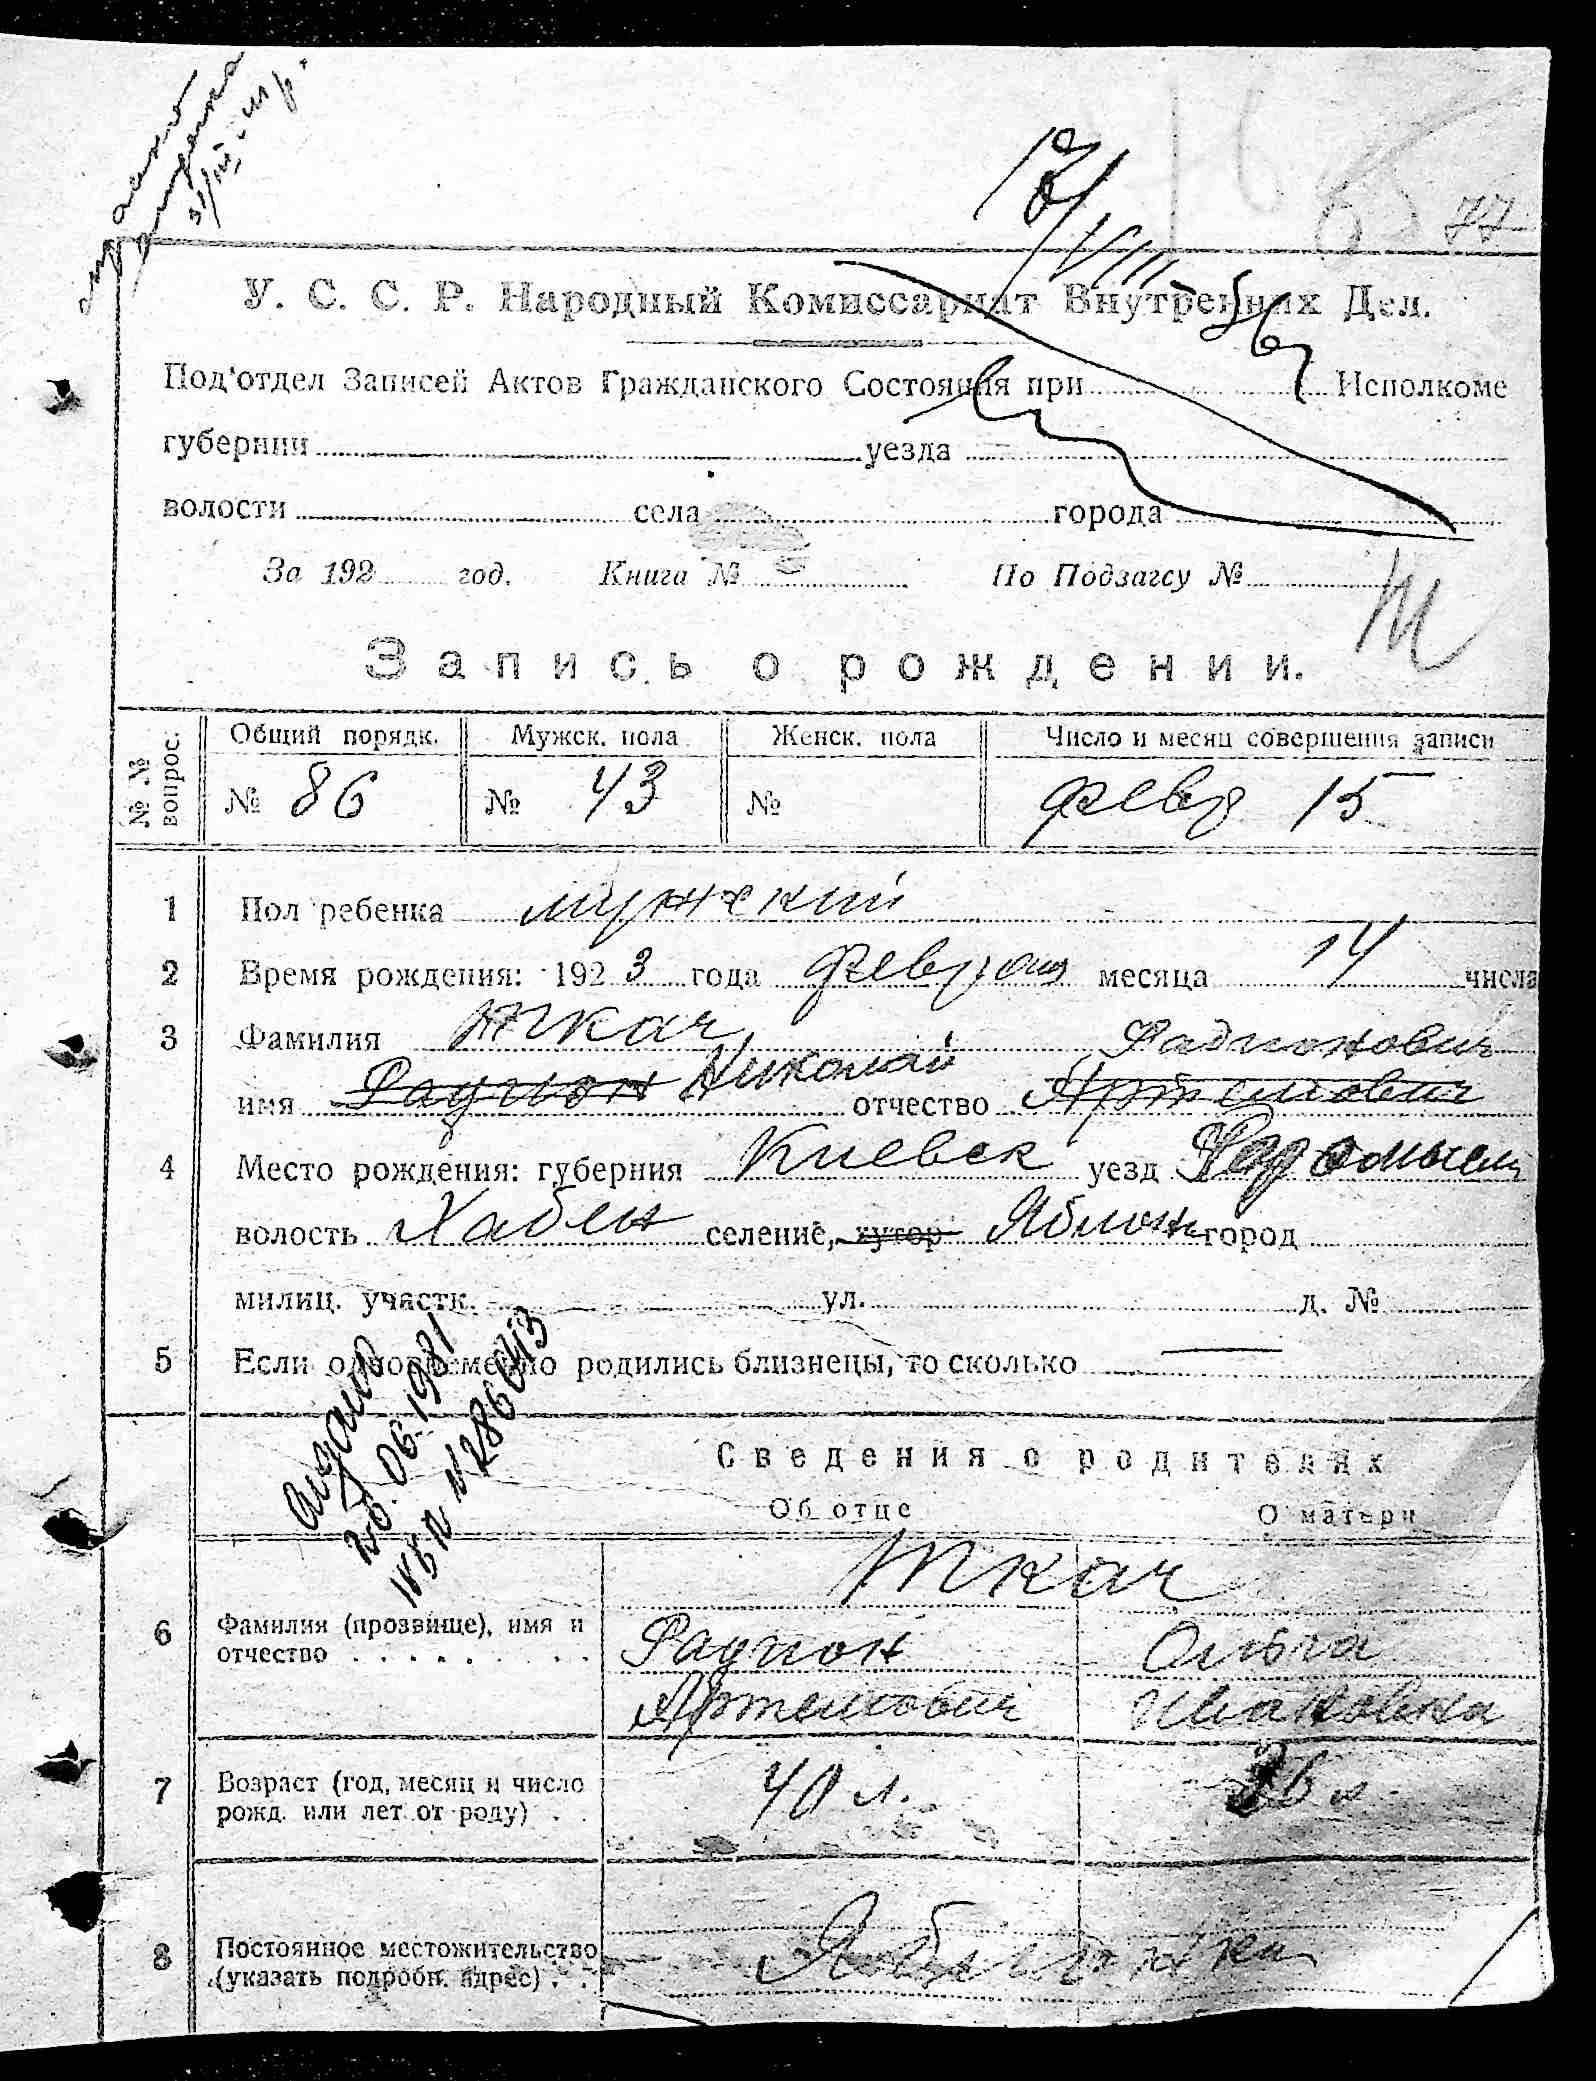 77
У. С. С. Р. Народный Комиссариат Внутренних Дел.
Под'отдел Записей Актов Гражданского Состояния при Исполкоме
губернии уезда
волости села города
За 192 год. Книга № По Подзагсу №
Запись о рождении.
№ № вопрос. Общий порядк. Мужск. пола Женск. пола Число и месяц совершения записи
№ 86 № 43 № февр 15
1 Пол ребенка мужский
2 Время рождения: 1923 года февраля месяца 14 числа
3 Фамилия Ткач Радионович
имя Радион Николай отчество Артемович
4 Место рождения: губерния Киевск уезд Радомысл
волость Хабен селение, хутор Яблонк город
милиц. участк. ул. д. №
5 Если одновременно родились близнецы, то сколько —
26.06.1981
Сведения о родителях
Об отце О матери
Ткач
6 Фамилия (прозвище), имя и отчество Радион Ольга
Артемович Ивановна
7 Возраст (год, месяц и число рожд. или лет от роду) 40 л. 36 л
8 Постоянное местожительство (указать подробн. адрес) Яблонка